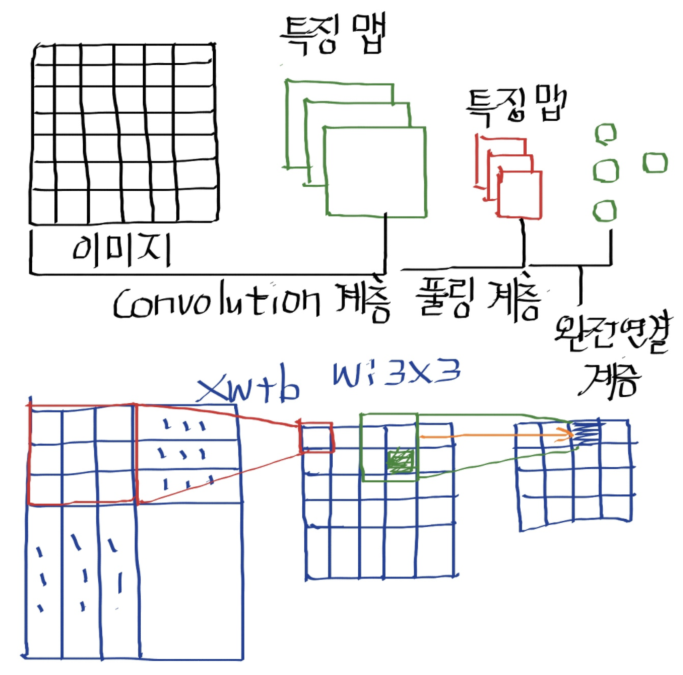 특징 맵
특징 맵
이미지
Convolution 계층
풀링 계층
완전연결
계층
xw+b
w: 3x3